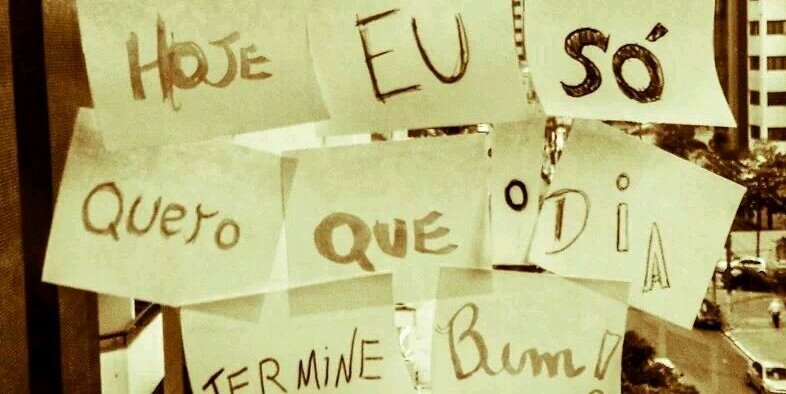 HOJE EU SÓ
Quero QUE o DiA
TERMiNE Bem!